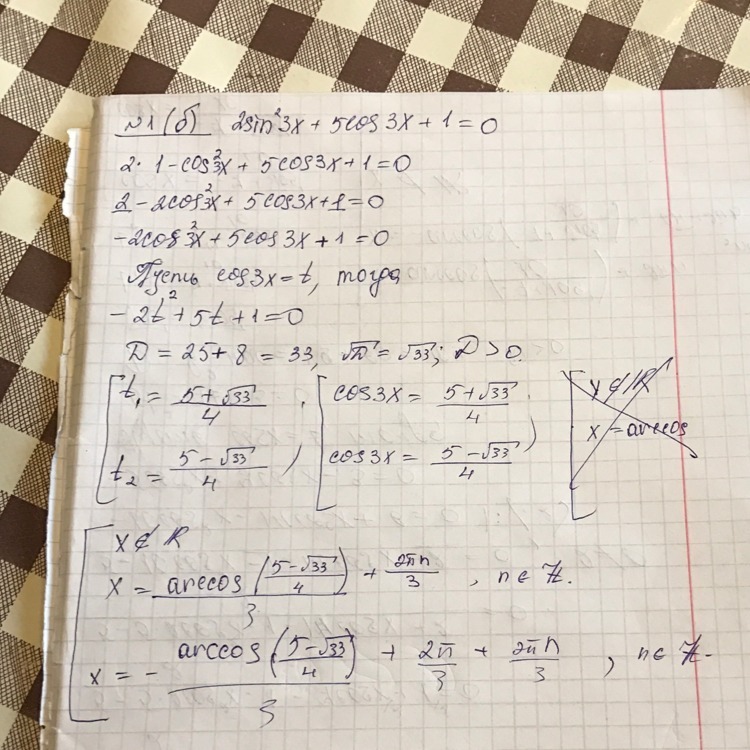 №1 (б) 2sin²3x + 5cos3x + 1 = 0
2· 1-cos²3x + 5cos3x+1=0
2 - 2cos²3x + 5cos3x+1=0
-2cos²3x+5cos3x+1=0
Пусть cos3x=t, тогда
-2t²+5t+1=0
D = 25+8 = 33, √D = √33; D>0.
t₁ = (5+√33)/4, cos3x = (5+√33)/4, x∉ℝ
t₂ = (5-√33)/4 cos3x = (5-√33)/4 x = arccos
x∉ℝ
x = arccos((5-√33)/4)/3 + 2πn/3, n∈ℤ.
x = - arccos((5-√33)/4)/3 + 2π/3 + 2πn/3, n∈ℤ.